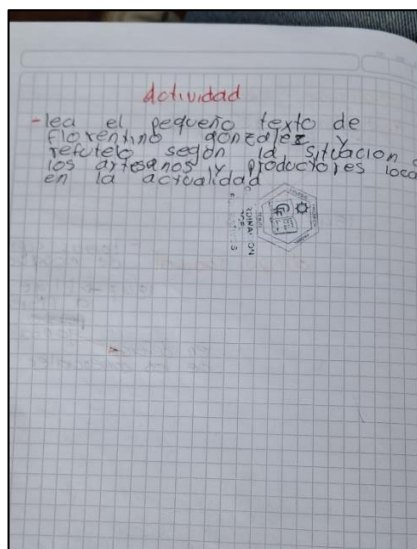 actividad
-lea el pequeño texto de
florentino gonzalez y
refutelo según la situacion
los artesanos y productores loca
en la actualidad